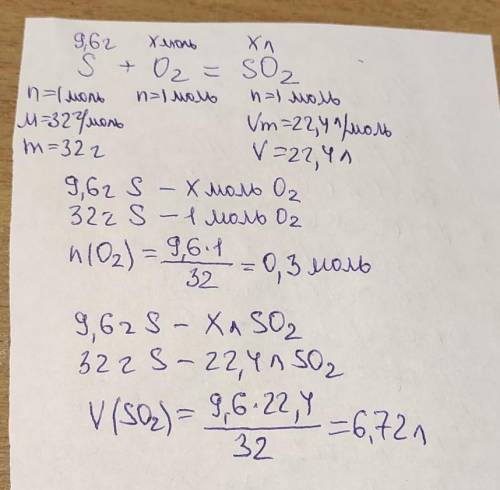 9,6г xмоль xл
S + O₂ = SO₂
n=1моль n=1моль n=1моль
M=32г/моль Vm=22,4л/моль
m=32г V=22,4л
9,6г S – x моль O₂
32г S – 1 моль O₂
n(O₂) = 9,6·1 / 32 = 0,3 моль
9,6г S – xл SO₂
32г S – 22,4л SO₂
V(SO₂) = 9,6·22,4 / 32 = 6,72л